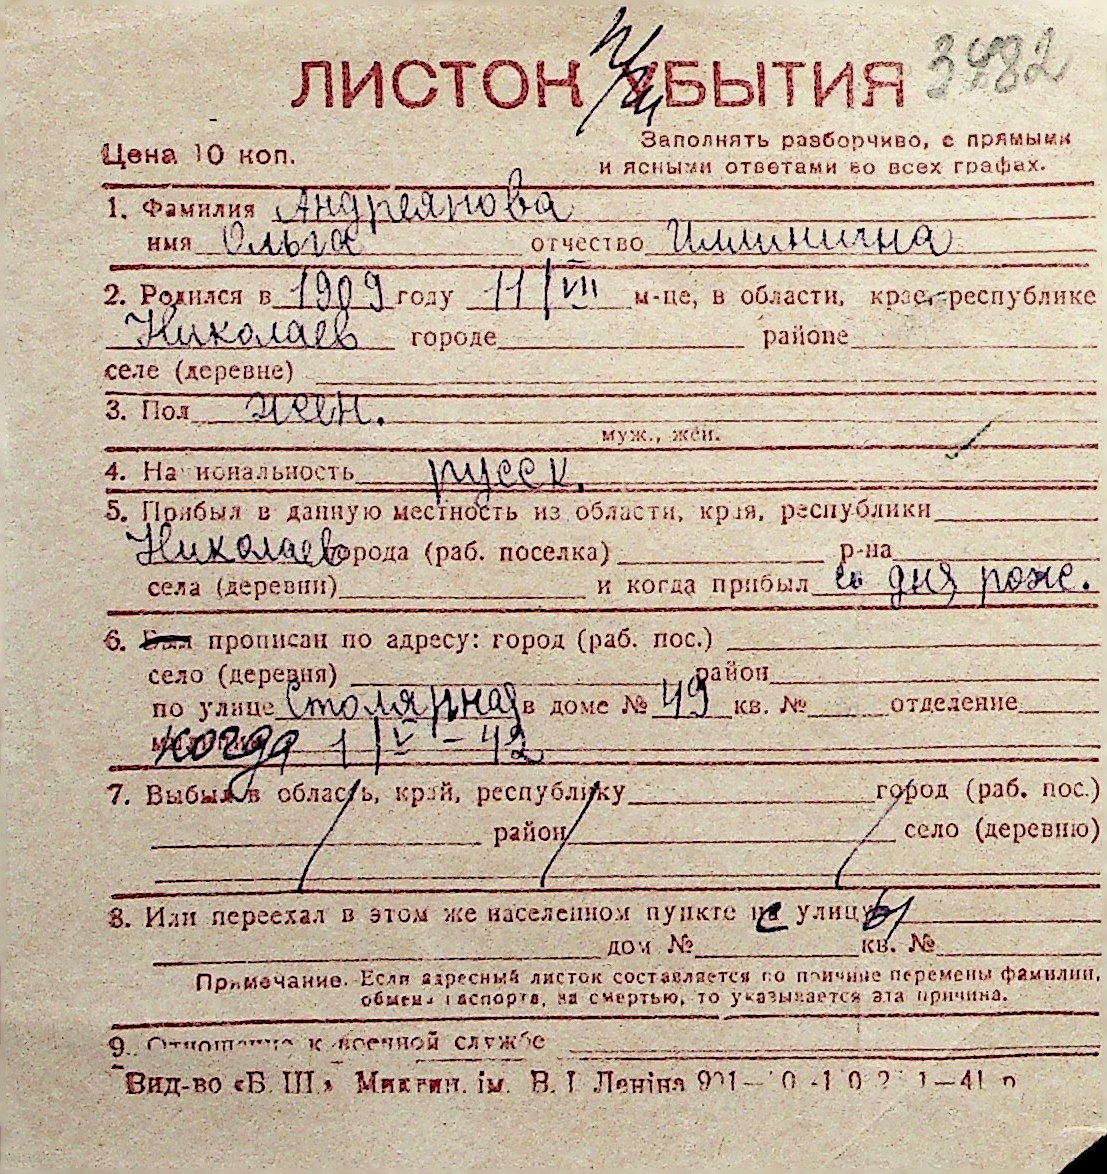 3482
ЛИСТОК УБЫТИЯ
Цена 10 коп.
Заполнять разборчиво, с прямыми
и ясными ответами во всех графах.
1. Фамилия Андреянова
имя Ольга отчество
2. Родился в 1909 году 11/VIII м-це, в области, крае, республике
Николаев городе районе
селе (деревне)
3. Пол жен.
муж., жен.
4. Национальность русск.
5. Прибыл в данную местность из области, края, республики
Николаев города (раб. поселка) р-на
села (деревни) и когда прибыл со дня рожс.
6. Был прописан по адресу: город (раб. пос.)
село (деревня) район
по улице Столярная в доме № 49 кв. № отделение
когда 1/V-42
7. Выбыл в область, край, республику город (раб. пос.)
район село (деревню)
8. Или переехал в этом же населенном пункте с улицы
дом № кв. №
Примечание. Если адресный листок составляется по причине перемены фамилии,
обмена паспорта, за смертью, то указывается эта причина.
9. Отношение к военной службе
Вид-во «Б. Ш.» Микгин. ім. В. І. Леніна